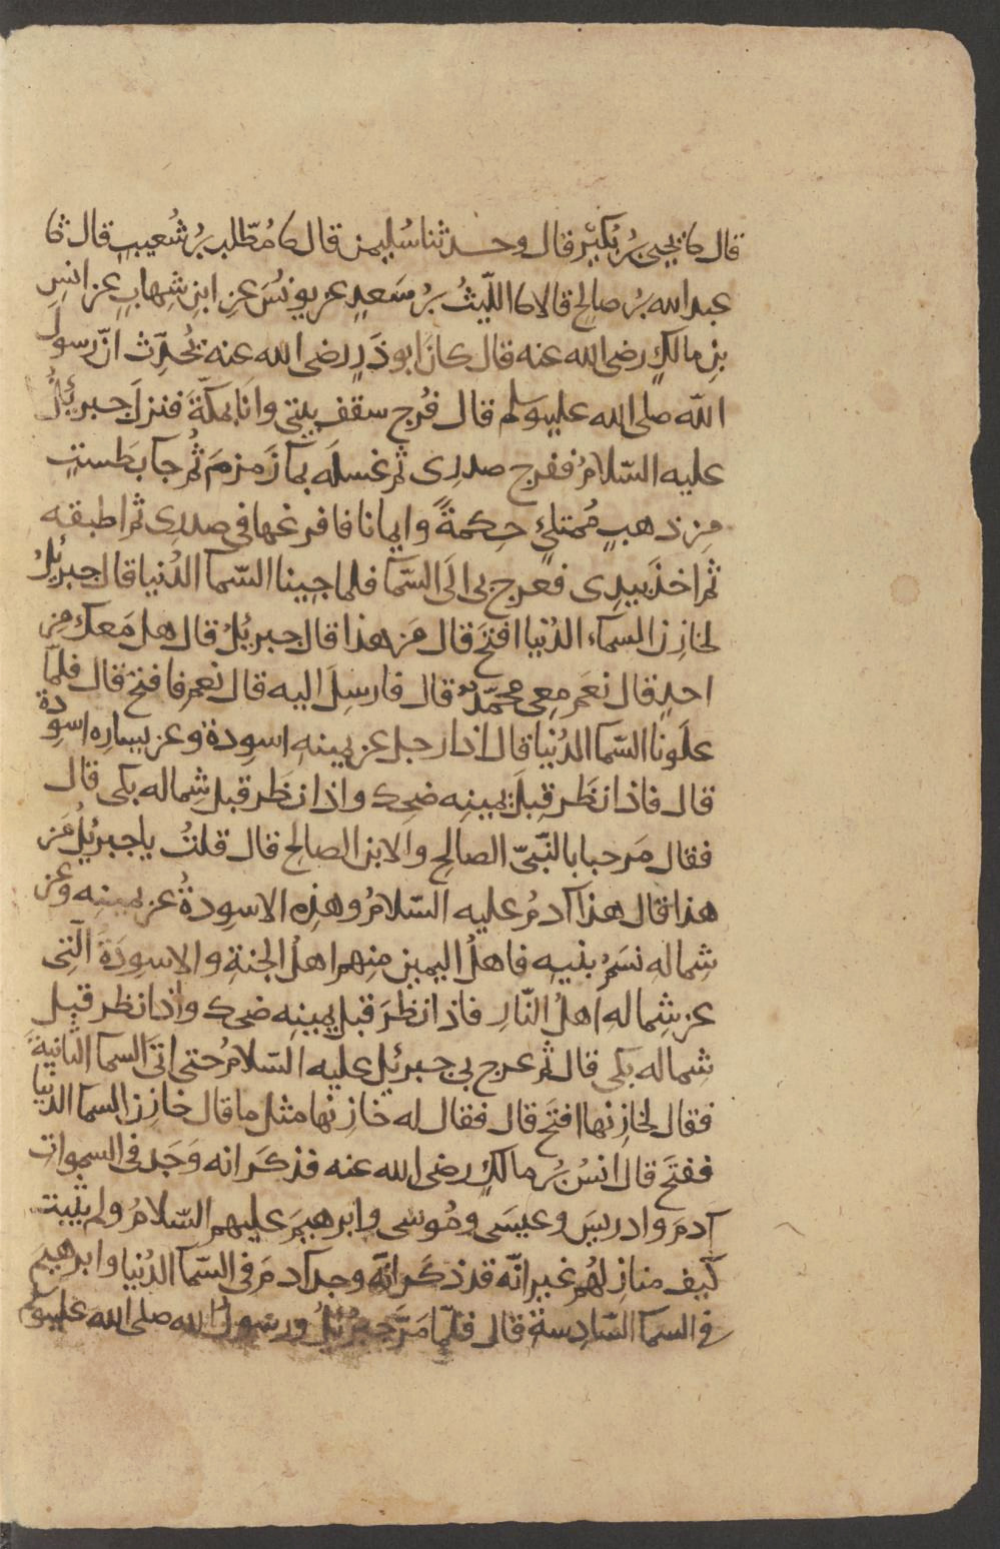 قال ثنا يحيى بنُ بُكَيْر قال وحدثنا سُليمن قال ثنا مُطّلب بنُ شُعيبٍ قال ثنا
عبد الله بنُ صالح قالا ثنا اللّيثُ بنُ سَعيدٍ عن يونُسَ عن ابنِ شِهابٍ عن انسِ
بنِ مالكٍ رضى الله عنه قال كانَ ابو ذَرٍ رضى الله عنه يُحَدِّث انّ رسول
الله صلى الله عليه وسلم قال فُرِج سقف بيتى وانا بمكّةَ فنزلَ جبرئيلُ
عليه السّلامُ ففرج صدرى ثم غسلَه بمآ زَمزمَ ثُم جا بطستٍ
مِن ذهبٍ مُمتلئٍ حِكمةً وايمانا فافرغها فى صدرِى ثم اطبقه
ثم اخذَ بيدِى فعرج بى الَى السّمآ فلما جينا السّما الدُنيا قال جبرئيلُ
لخازِن السمآء الدُنيا افتَح قال مَن هذا قال جبرئيلُ قال هل مَعك مِن
احدٍ قال نعَم معِى محمّدٌ قال فارسِلَ اليه قال نعم فافتح قال فلمّا
علَونا السّما الدُنيا قال اذا رجل عن يمينهِ اسوِدة وعن يسارِه اسوِدة
قال فاذا نظَر قِبلَ يمينِه ضحِك واذا نظَر قبل شِماله بكى قال
فقال مَرحبا بالنّبىّ الصالحِ والابن الصالحِ قال قلتُ يا جبرئيلُ مَن
هذا قال هذا آدمُ عليه السّلامُ وهذِه الاسوِدةُ عن يمينِه وعن
شِماله نسَمُ بنيه فاهلُ اليمين مِنهم اهلُ الجنةِ والاسوِدَةُ الّتِى
عن شِمالهِ اهلُ النّارِ فاذا نظَرَ قبل يمينِه ضحِك واذا نظر قبل
شماله بكى قال ثم عرج بى جبرئيل عليه السّلامُ حتى اتَى السما الثانيةَ
فقال لخازِنها افتَح قال فقال له خازِنها مثل ما قال خازِن السما الدُنيا
ففتَح قال انسُ بنُ مالكٍ رضى الله عنه فذكَر انه وَجَد فى السمواتِ
آدمَ وادريسَ وعيسَى ومُوسى وابرهيمَ عليهم السّلامُ ولم يثبت
كَيف منازِلهُم غير انّه قد ذكَر انّه وجد آدمَ فى السّما الدُنيا وابرهيمَ
فى السما السّادِسةِ قال فلمّا مَرَّ جبرئيلُ ورسولُ الله صلى الله عليه وسلم